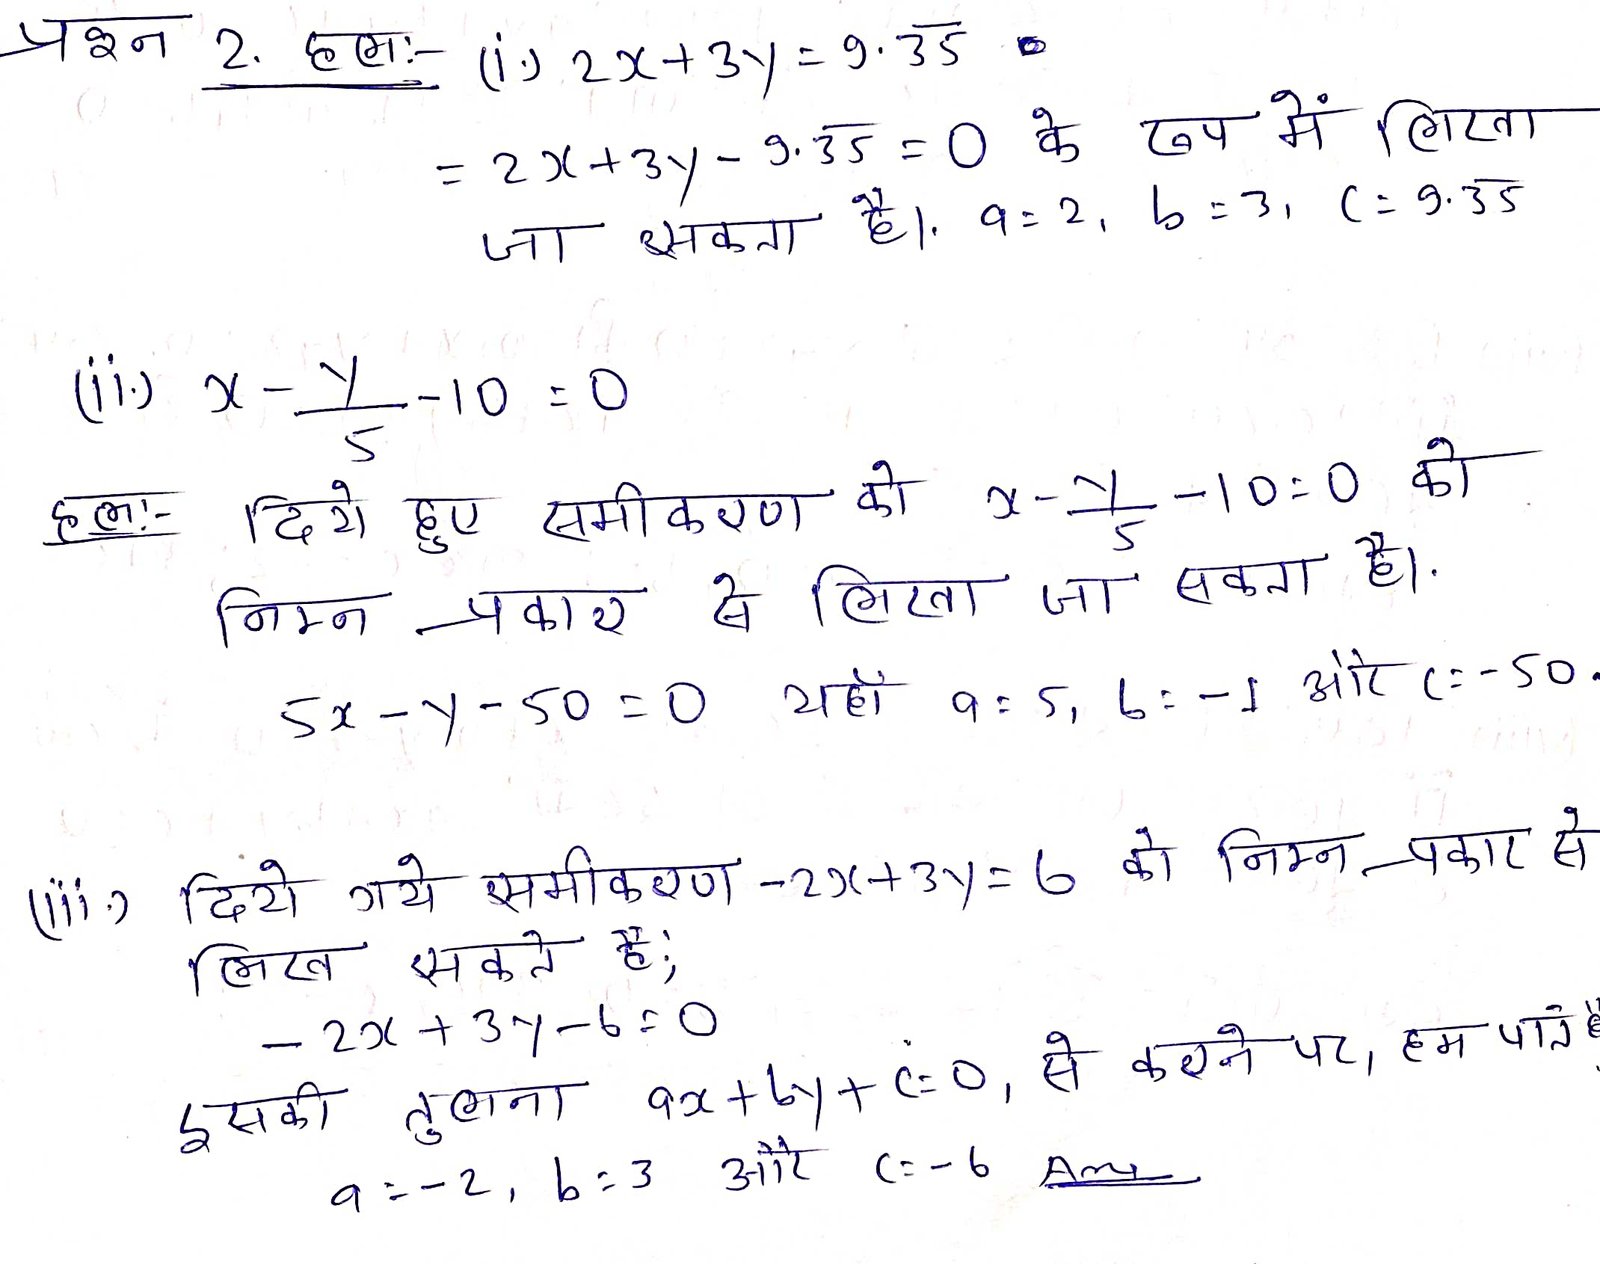 प्रश्न 2. हल:- (i.) 2x+3y = 9.3̅5̅
= 2x+3y - 9.3̅5̅ = 0 के रूप में लिखा
जा सकता है। a=2, b=3, c=9.3̅5̅
(ii.) x - y/5 - 10 = 0
हल:- दिये हुए समीकरण को x - y/5 - 10 = 0 को
निम्न प्रकार से लिखा जा सकता है।
5x - y - 50 = 0 यहाँ a=5, b=-1 और c=-50.
(iii.) दिये गये समीकरण -2x+3y=6 को निम्न प्रकार से
लिख सकते हैं;
-2x + 3y - 6 = 0
इसकी तुलना ax+by+c=0, से करने पर, हम पाते हैं
a=-2, b=3 और c=-6 Ans